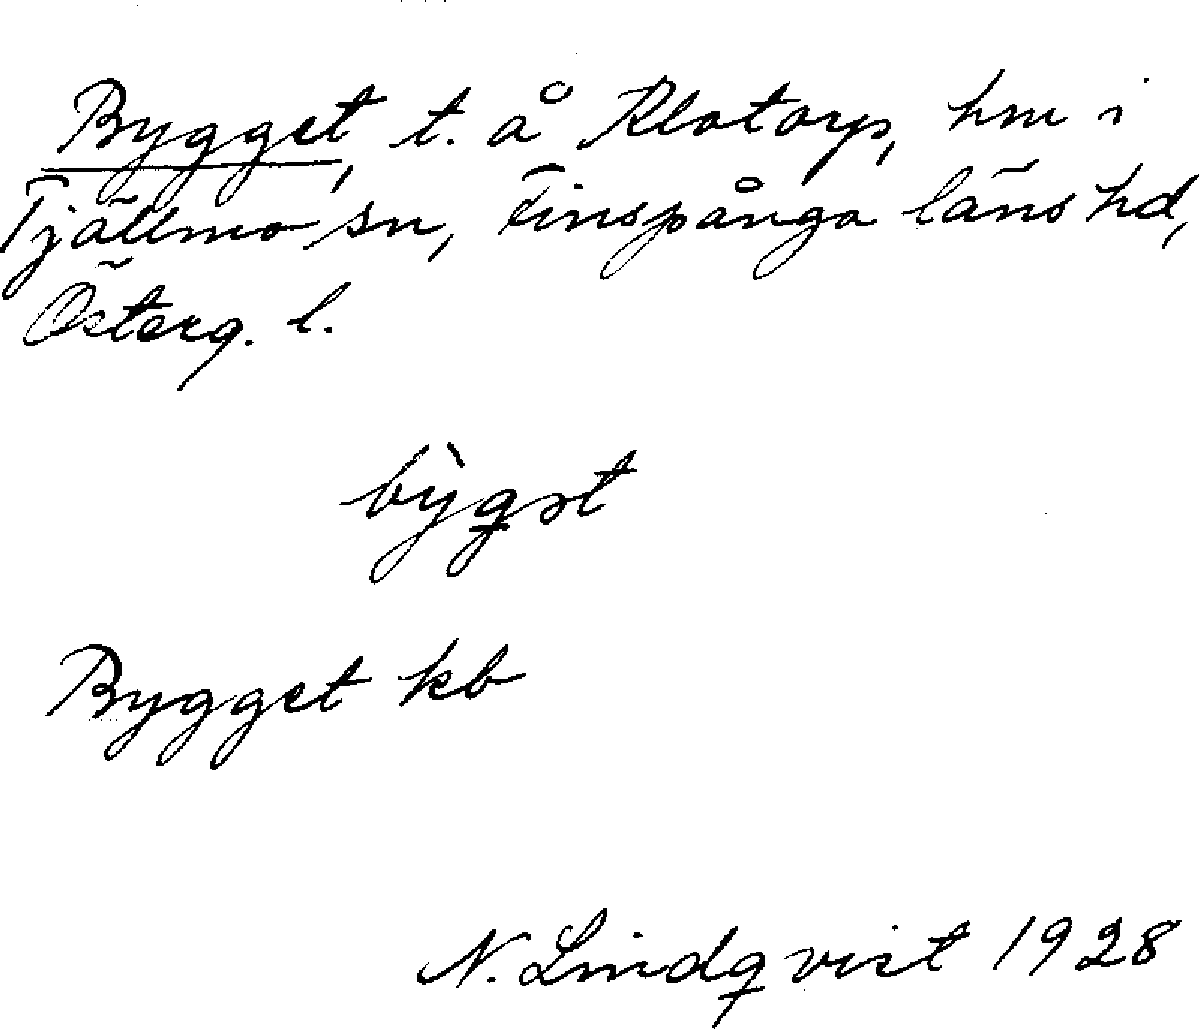 Bygget, t. å Klotorp, hm i
Tjällmo sn, Finspånga läns hd,
Österg. l.
bỳgət
Bygget kb
N. Lindqvist 1928